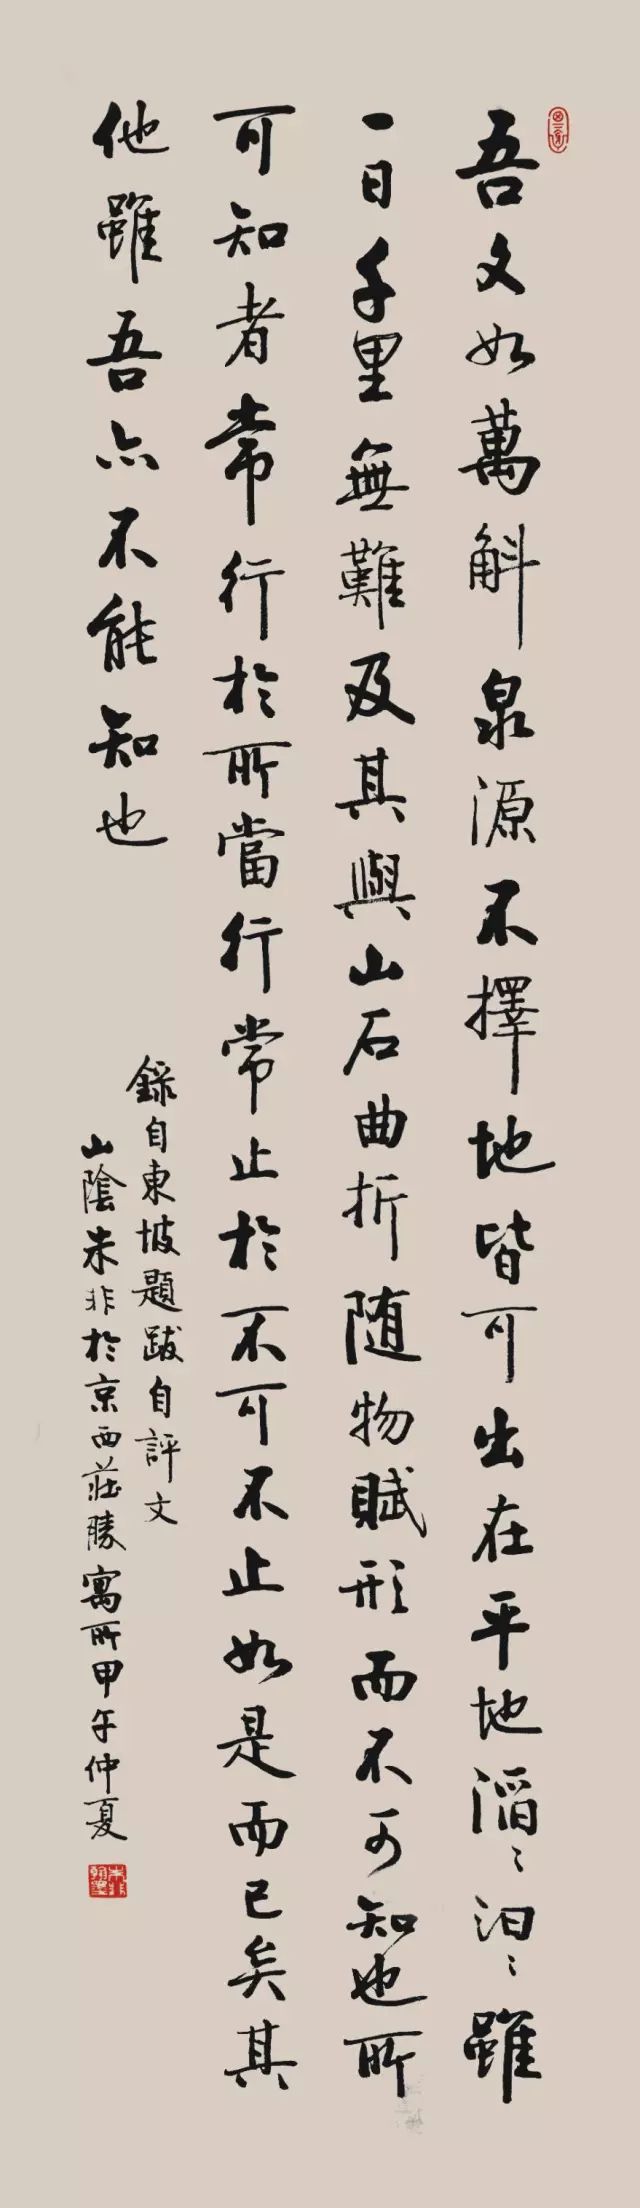 吾文如萬斛泉源不擇地皆可出在平地滔〻汩〻雖
一日千里無難及其與山石曲折随物賦形而不可知也所
可知者常行於所當行常止於不可不止如是而已矣其
他雖吾亦不能知也
錄自東坡題跋自評文
山陰朱非於京西莊勝寓所甲午仲夏